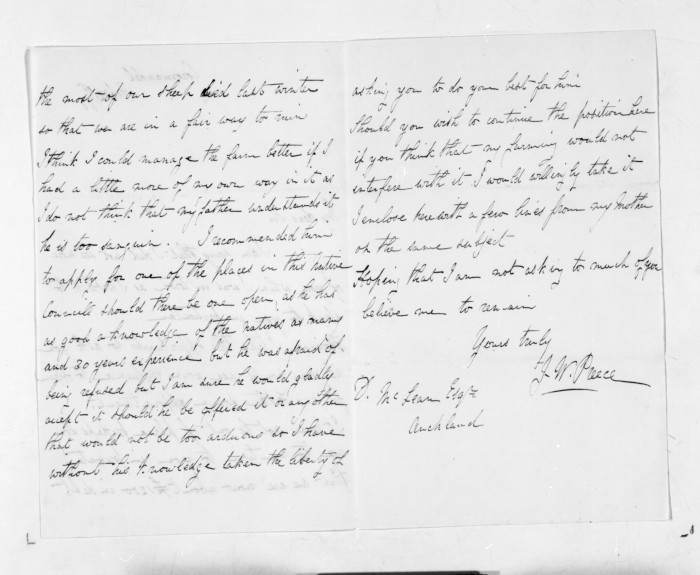 the most of our sheep died last winter
so that we are in a fair way to ruin
I think I could manage the farm better if I
had a little more of my own way in it as
I do not think that my father understands it
he is too sanguin.. I recommended him
to apply for one of the places in this native
Councill should there be one open, as he has
as good a knowledge of the natives as many
and 30 years experience but he was afraid of
being refused but I am sure he would gladly
acept it should he be offered it or any other
that would not be too arduous so I have
without his knowledge taken the liberty of
asking you to do your best for him
Should you wish to continue the position here
if you think that my farming would not
interfere with it I would willingly take it
I enclose herewith a few lines from my Mother
on the same subject
Hoping that I am not asking to much of you
believe me to remain
Yours truly
J. W. Preece
D. McLean Esqre
Auckland